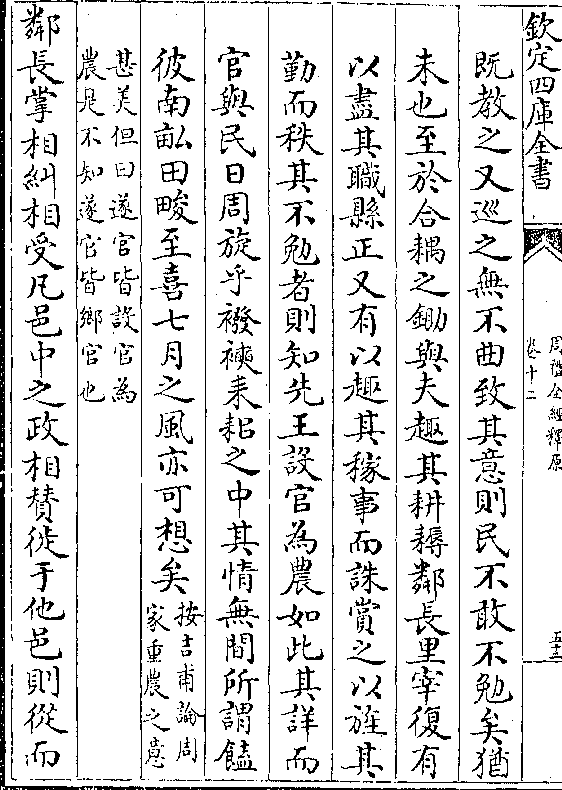 欽定四庫全書
周禮全經釋原
卷十二
五十三
既教之又巡之無不曲致其意則民不敢不勉矣猶
未也至於合耦之鋤與夫趣其耕耨鄰長里宰復有
以盡其職縣正又有以趣其稼事而誅賞之以旌其
勤而秩其不勉者則知先王設官為農如此其詳而
官與民日周旋乎襏襫耒耜之中其情無間所謂饁
彼南畝田畯至喜七月之風亦可想矣
按吉甫論周
家重農之意
甚美但曰遂官皆設官為
農是不知遂官皆鄉官也
鄰長掌相糾相受凡邑中之政相贊徙于他邑則從而